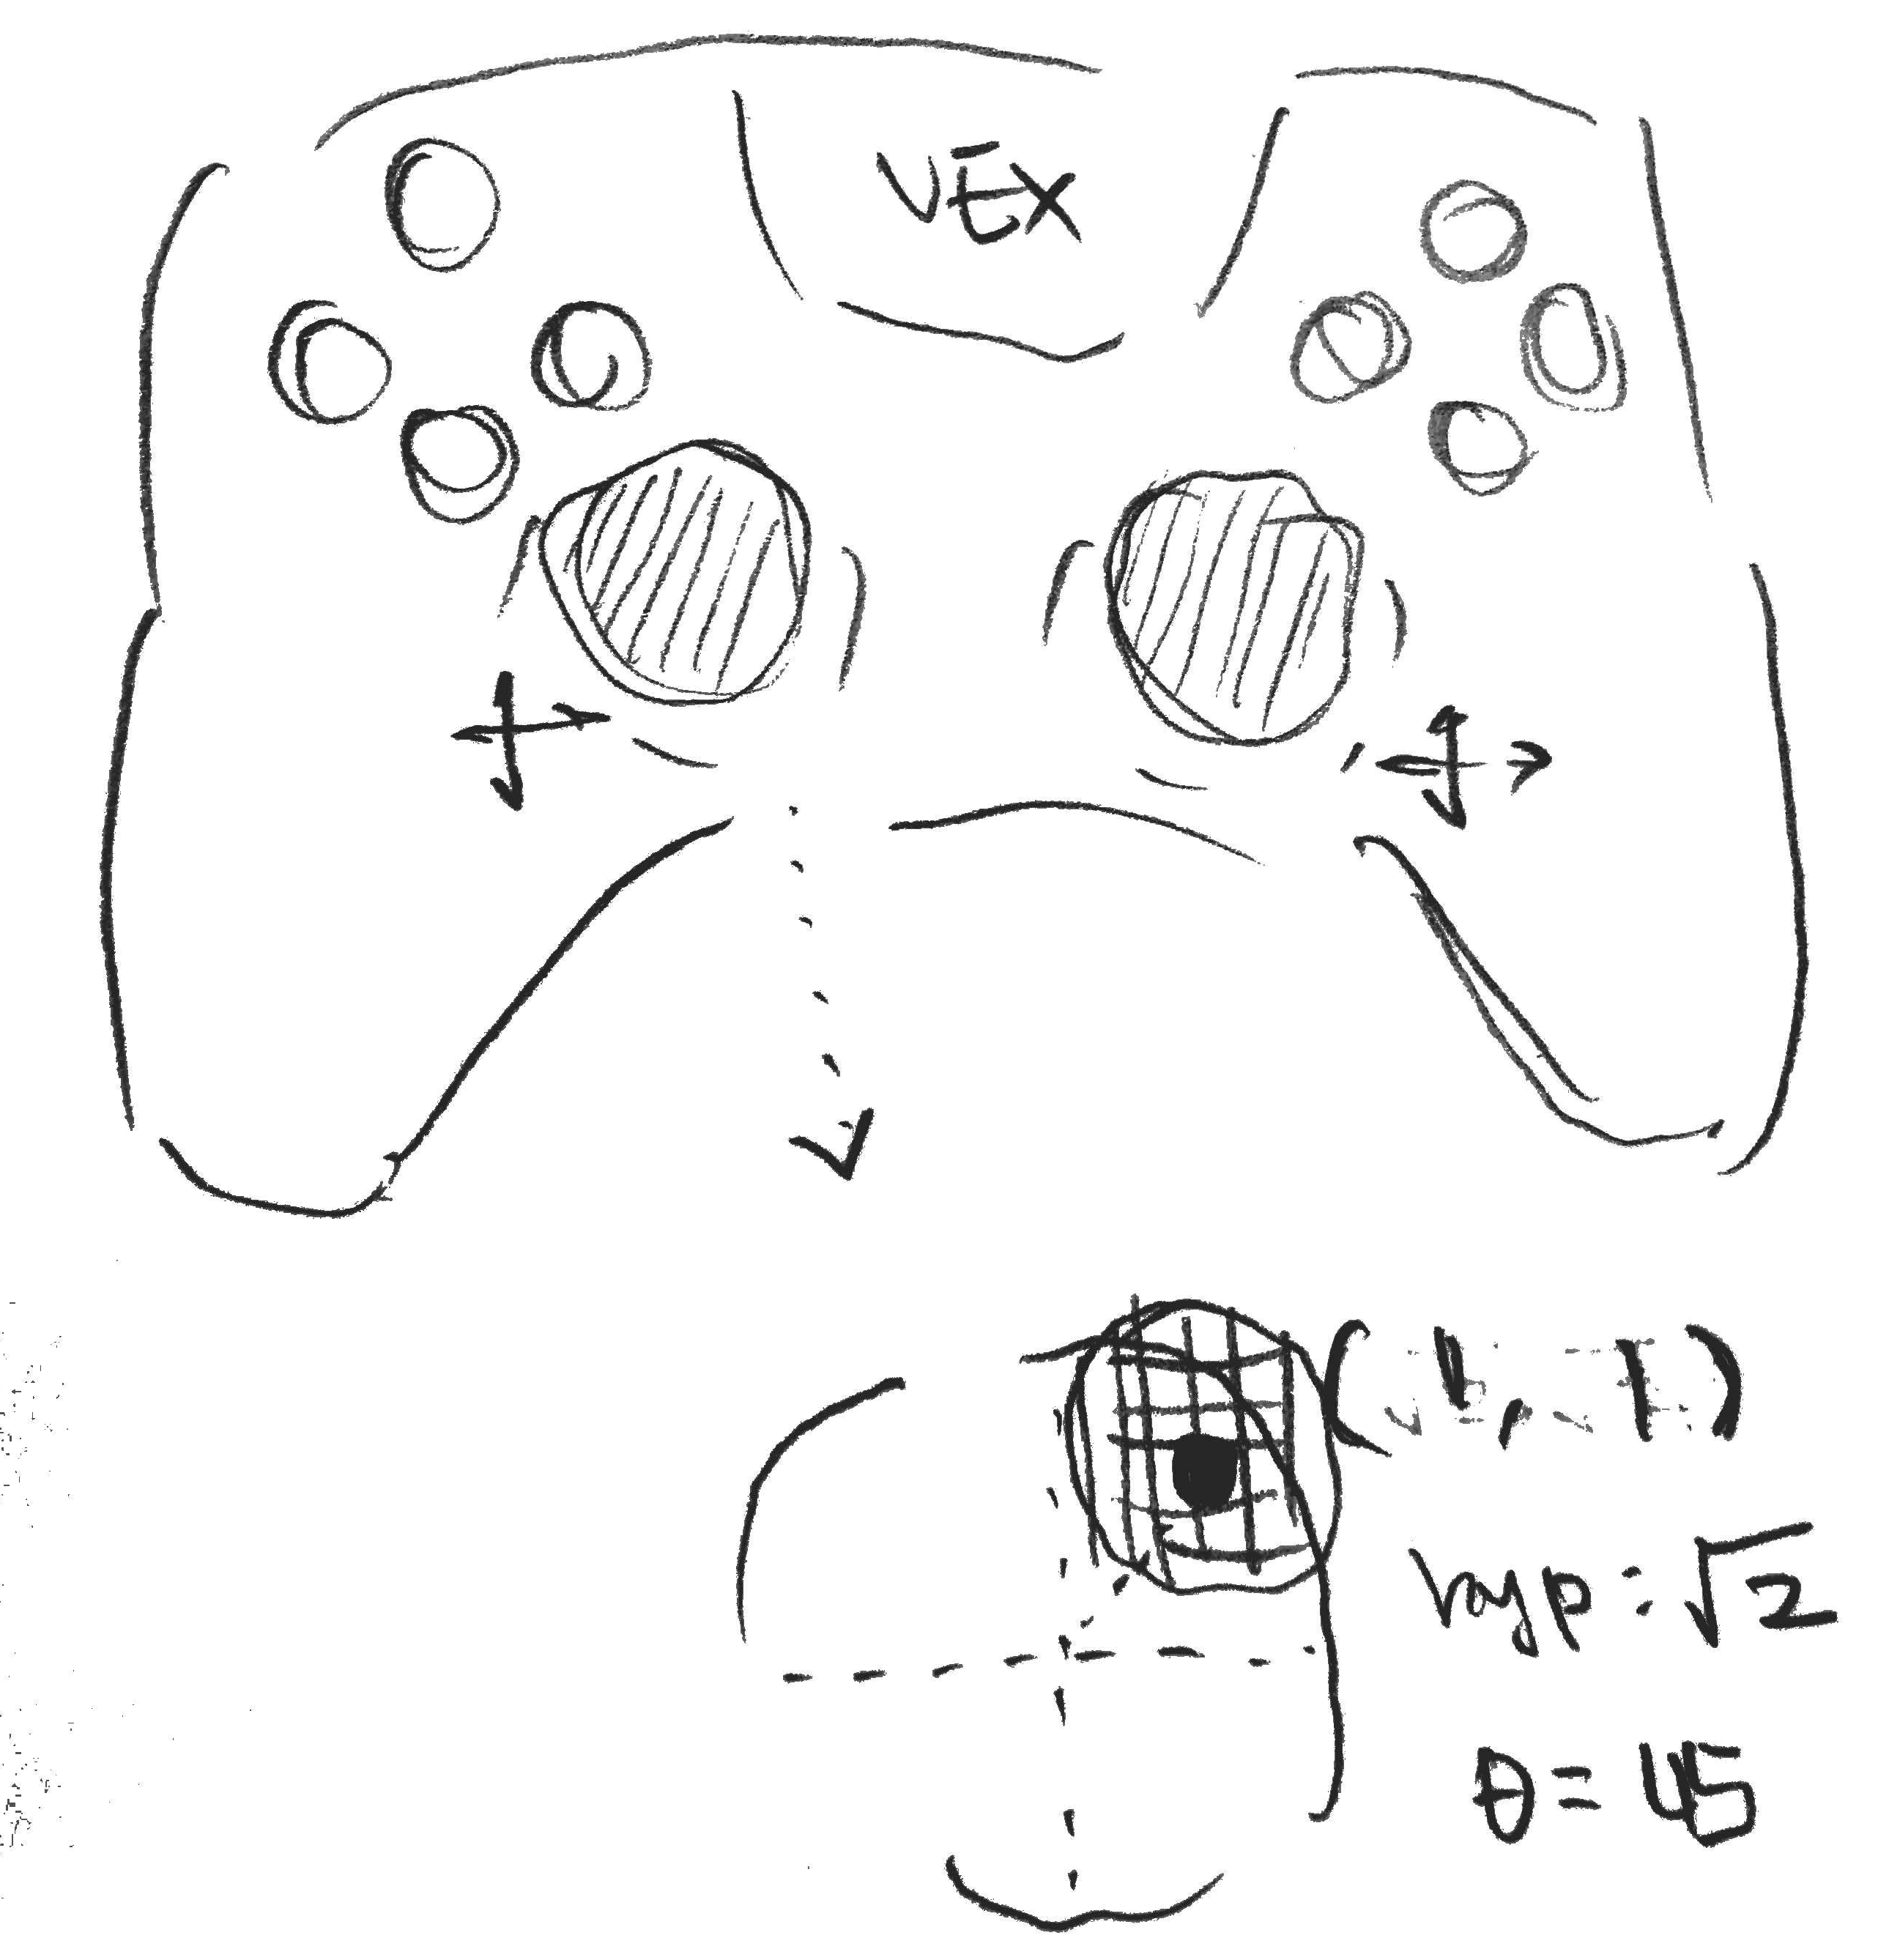 VEX
(1, 1)
hyp: √2
θ = 45